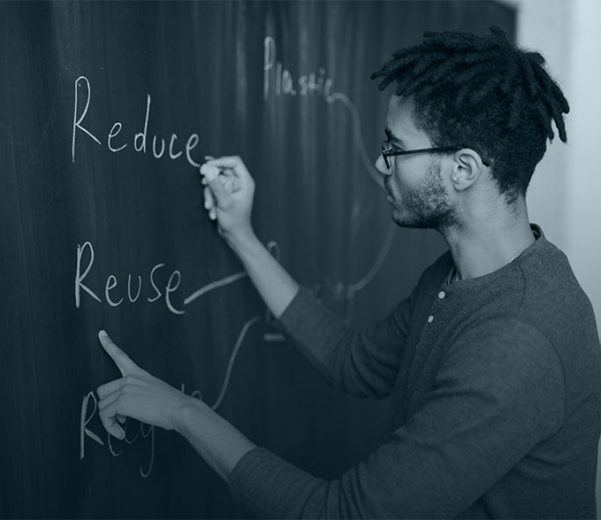 Plastic
Reduce
Reuse